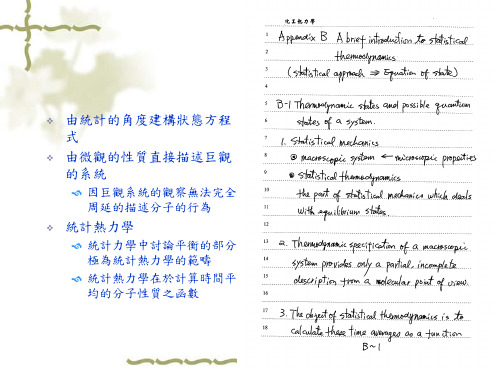 由統計的角度建構狀態方程
式
由微觀的性質直接描述巨觀
的系統
因巨觀系統的觀察無法完全
周延的描述分子的行為
統計熱力學
統計力學中討論平衡的部分
極為統計熱力學的範疇
統計熱力學在於計算時間平
均的分子性質之函數
化工熱力學
1 Appendix B A brief introduction to statistical
2 thermodynamics
3 (statistical approach ⇒ Equation of state)
4
5 B-1 Thermodynamic states and possible quantum
6 states of a system.
7 1. Statistical mechanics
8 @ macroscopic system ← microscopic properties
9 @ statistical thermodynamics
10 the part of statistical mechanics which deals
11 with equilibrium states.
12
13 2. Thermodynamic specification of a macroscopic
14 system provides only a partial, incomplete
15 description from a molecular point of view.
16
17 3. The object of statistical thermodynamics is to
18 calculate these time averages as a function
B~1